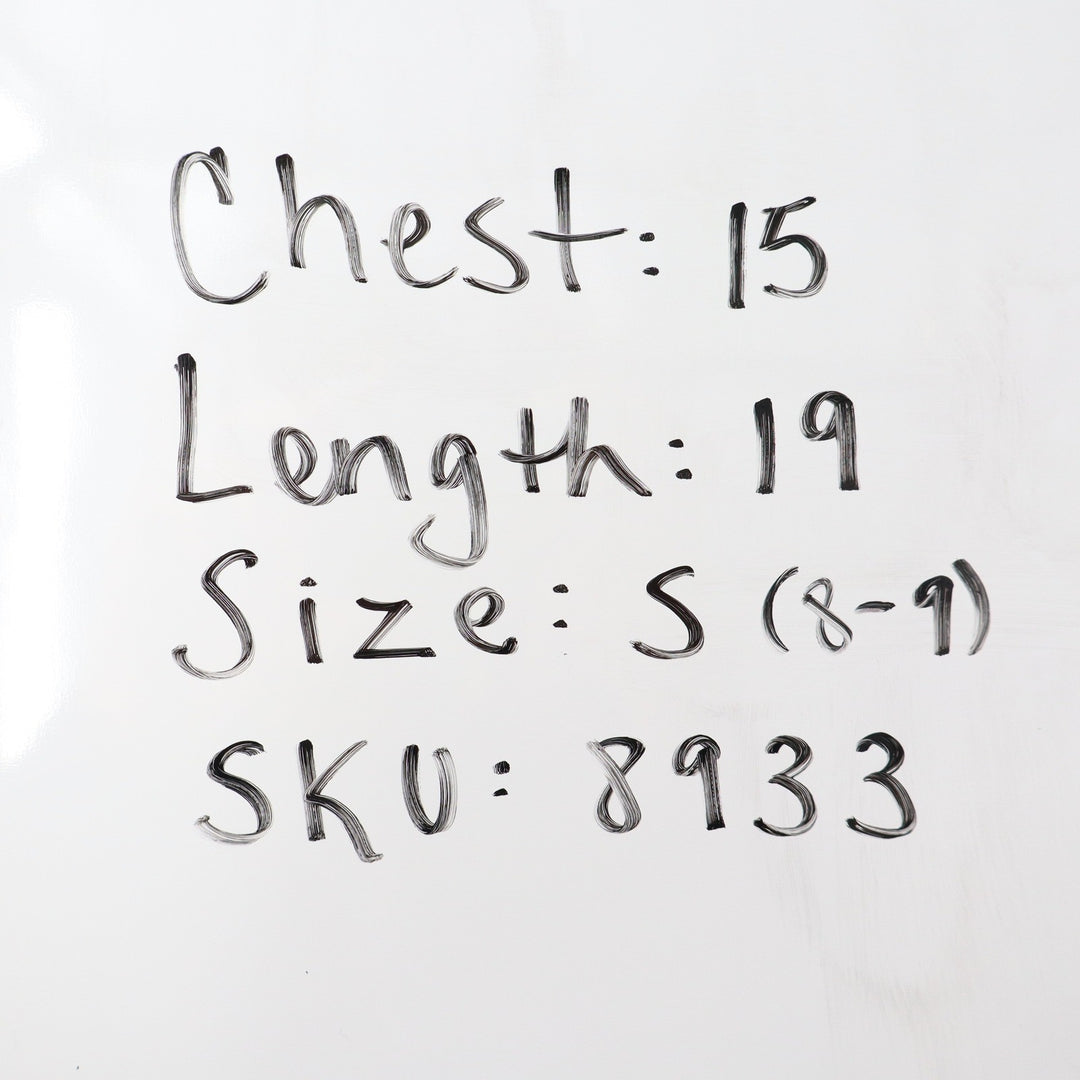 Chest: 15
Length: 19
Size: S (8-9)
SKU: 8933